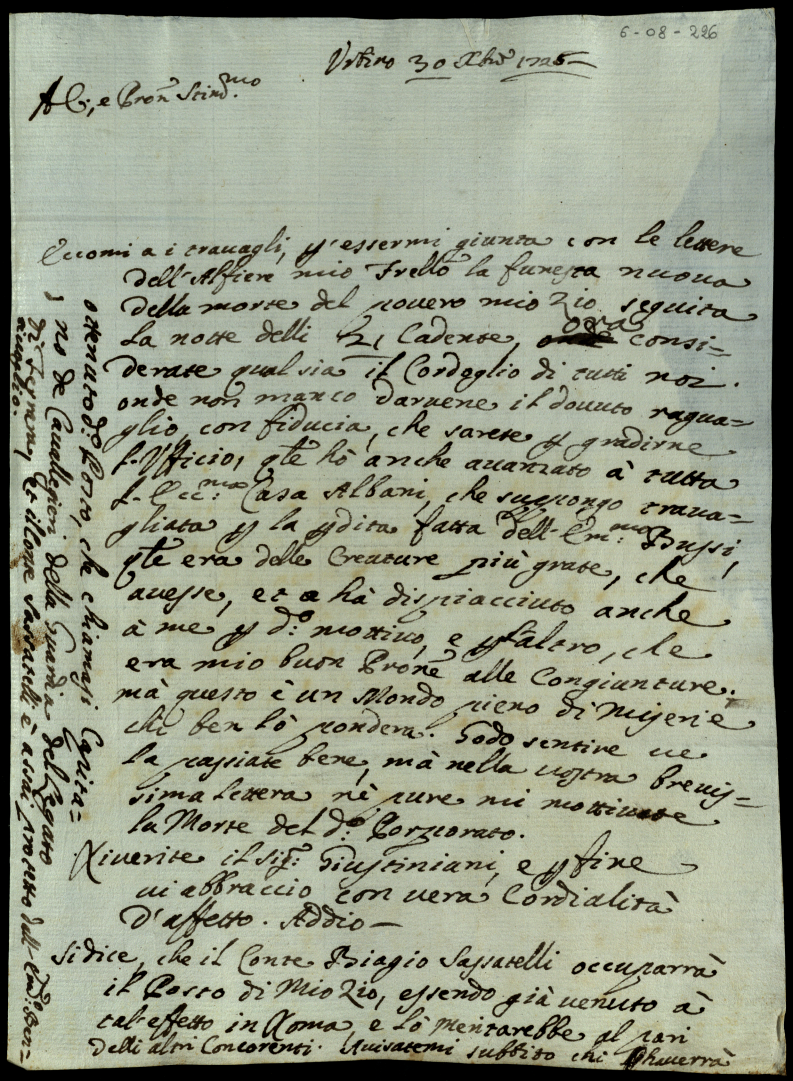 6-08-226
Urbino 30 Xbre 1726
A C, e Pron Stim.mo
Eccomi a i travagli, p essermi giunta con le lettere
dell'Alfiere mio Frello la funesta nuova
della morte del povero mio Zio, seguita
la notte delli 21 Cadente, ora consi=
derate qual sia il Cordoglio di tutti noi.
onde non manco darvene il dovuto ragua=
glio, con fiducia, che sarete p gradirne
l'Ufficio, qle hò anche avanzato à tutta
l'Ecc.ma Casa Albani, che suppongo trava=
gliata p la pdita fatta dell'Em.mo Bussi,
qle era delle Creature più grate, che
avesse, et a hà dispiacciuto anche
à me p d.o mottivo, e p l'altro, che
era mio buon Prone alle Congiunture.
mà questo è un Mondo pieno di Miserie
chi ben lò pondera. Godo sentire ve
la passiate bene, mà nella vostra brevis=
sima lettera nè pure mi mottivate
la Morte del d.o Porporato.
Riverite il Sig.r Giustiniani, e p fine
vi abbraccio con vera Cordialità
d'affetto. Addio
Si dice, che il Conte Biagio Sassatelli occuparrà
il Posto di Mio Zio, essendo già venuto à
tal'effetto in Roma, e lò meritarebbe al pari
delli altri Concorenti. Avisatemi subbito chi haverrà
ottenuto d.o Posto, che chiamasi Capita=
no de Cavallegieri della Guardia del Legato
di Ferrara, et il Conte Sassatelli è assai protetto dall'Em.o Ben=
tivoglio.